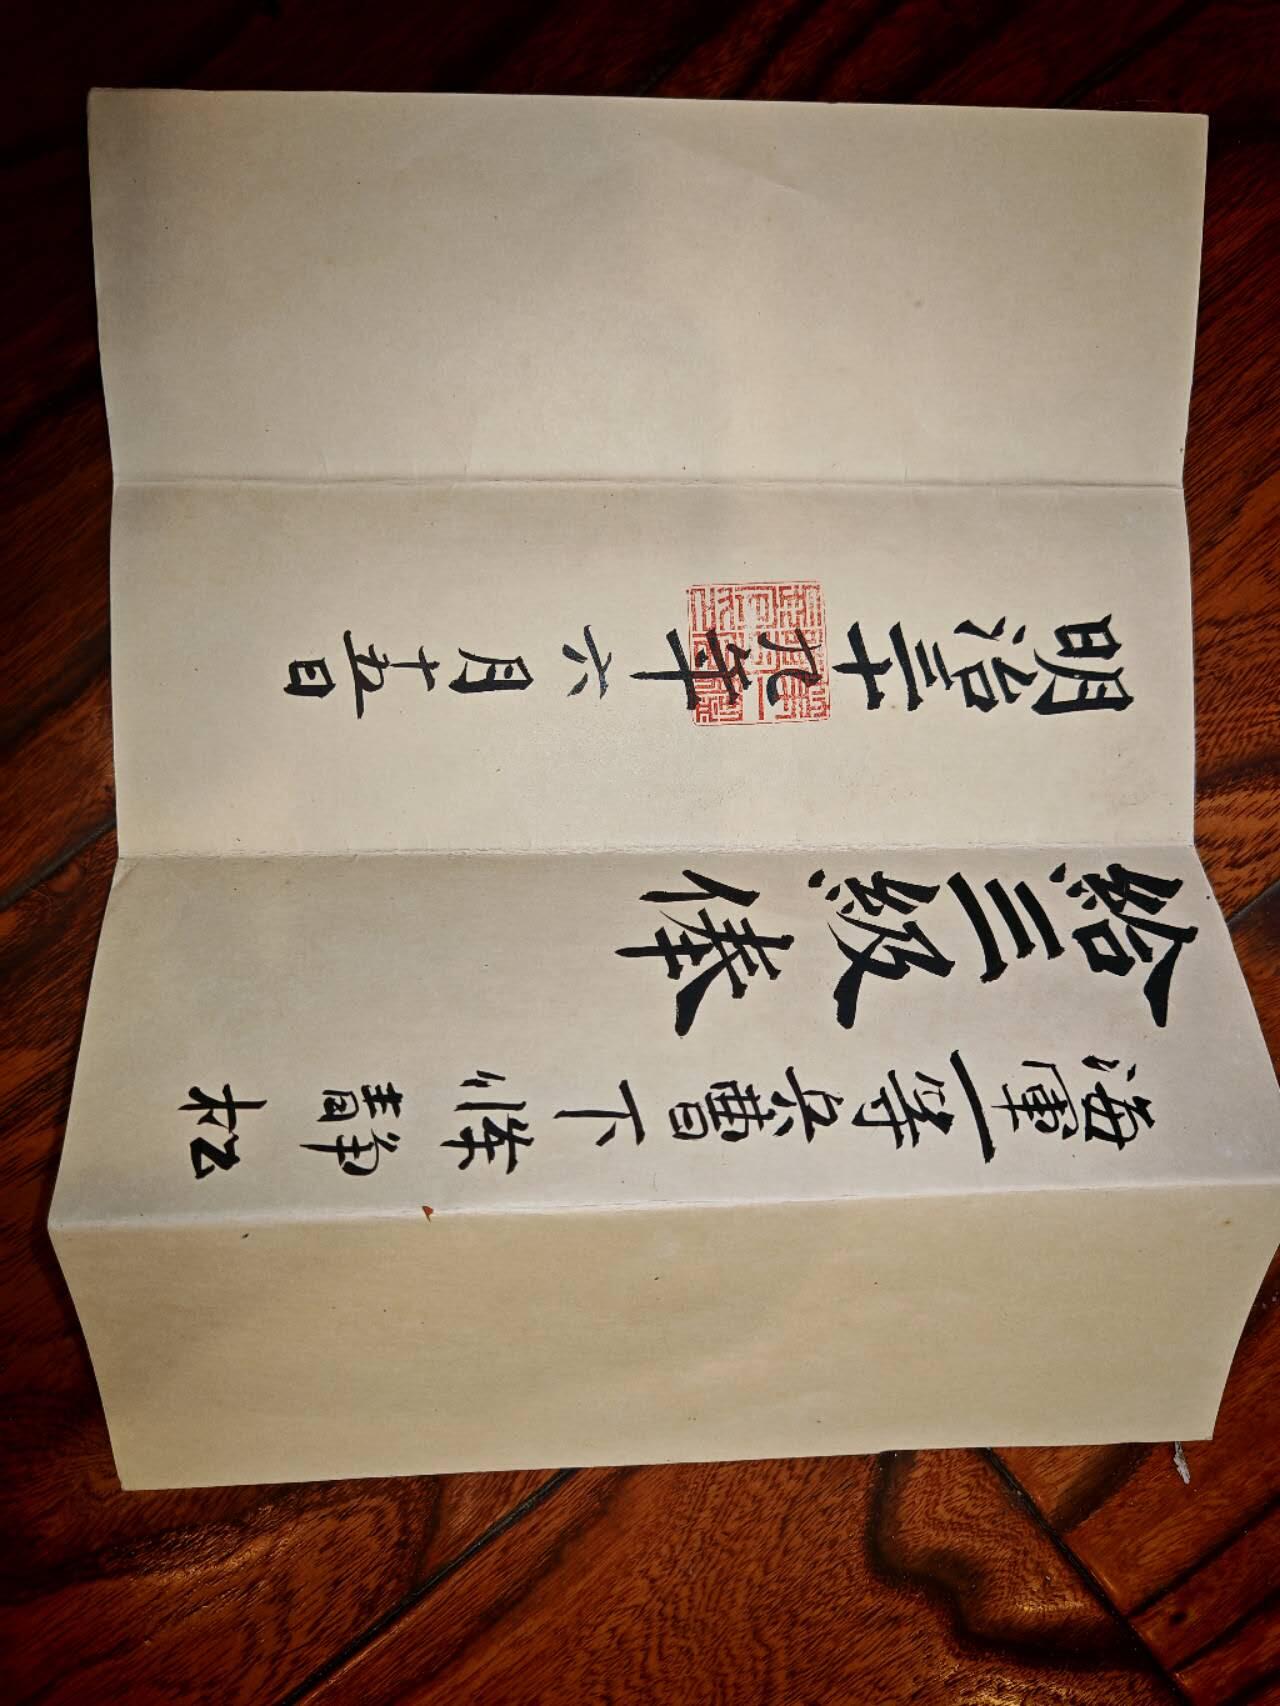 海軍一等兵曹下條静松
給三級俸
明治三十九年六月十五日